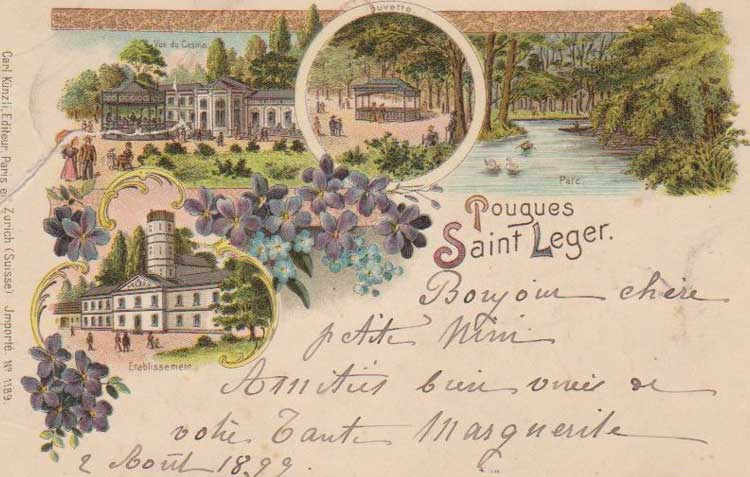 Buvette
Vue du Casino
Parc.
Pougues
Saint Leger.
Etablissement.
Carl Künzli, Editeur, Paris et Zurich (Suisse) Importé. Nº 1189.
Bonjour chère
petite Nini
Amitiés bien vives de
votre Tante Marguerite
2 Août 1899.